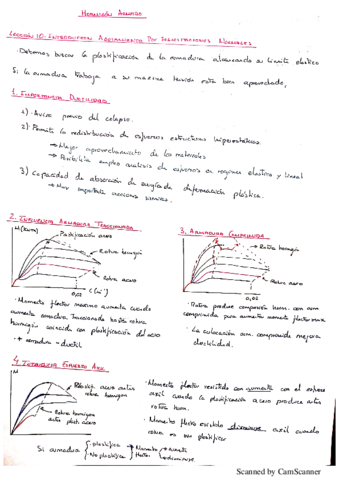 HORMIGÓN ARMADO
LECCIÓN 10: INTRODUCCIÓN AGOTAMIENTO POR SOLICITACIONES NORMALES
Debemos buscar la plastificación de la armadura alcanzando su límite elástico
Si la armadura trabaja a su maxima tensión esta bien aprovechada,
1. IMPORTANCIA DUCTILIDAD
1) Aviso previo del colapso.
2) Permite la redistribución de esfuerzos estructuras hiperestáticas
→ Mejor aprovechamiento de los materiales
→ Posibilita empleo analisis de esfuerzos en regimen elástico y lineal
3) Capacidad de absorción de energía de deformación plástica.
→ Muy importante acciones sísmicas
2. INFLUENCIA ARMADURA TRACCIONADA
M (KN·m)
Plastificación acero
Rotura hormigón
Rotura acero
0,02
C (m⁻¹)
· Momento flector maximo aumenta cuando
aumenta armadura traccionada hasta rotura
hormigón coincida con plastificación del acero
· + armadura - ductil
3. ARMADURA COMPRIMIDA
Rotura hormigón
Rotura acero
0,02
· Rotura produce compresión horm. con arm
comprimida para aumentar momento flector max
· La colocación arm. comprimida mejora
ductilidad.
4. INFLUENCIA ESFUERZO AXIL
M
Plastich. acero antes
rotura hormigón
Rotura hormigon
antes plast. acero
· Momento flector resistido con aumenta con el esfuerzo
axil cuando la plastificación acero produce antes
rotura horm.
· Momento flector resistido disminuye axil cuando
rotura es sin plastificar
Si armadura { plastifica → Momento ↗ aumenta
No plastifica Flector ↘ disminuye
Scanned by CamScanner